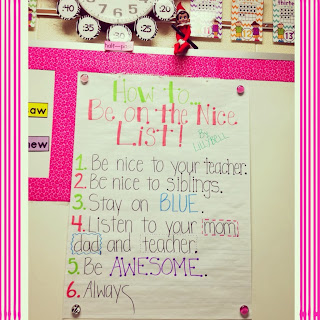 :40
:35
:30
:25
:20
half-past
How to...
Be on the Nice
List!
By:
LILLYBELL
1. Be nice to your teacher.
2. Be nice to siblings.
3. Stay on BLUE.
4. Listen to your mom
dad and teacher.
5. Be AWESOME.
6. Always
saw